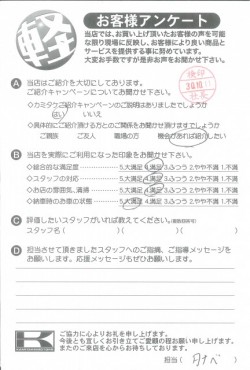 軽
お客様アンケート
当店では、お買い上げ頂いたお客様の声を可能
な限り現場に反映し、お客様により良い商品と
サービスを提供する事に努めています。
大変お手数ですが是非お声をお聞かせ下さい。
A 当店はご紹介を大切にしております。
ご紹介キャンペーンについてお聞かせ下さい
・カミタケご紹介キャンペーンのご説明はありましたでしょうか
はい いいえ
・具体的にご紹介頂ける方とのご関係をお聞かせ頂けますでしょうか
ご親族 ご友人 職場の方 機会があれば紹介したい
B 当店を実際にご利用になった印象をお聞かせ下さい。
・総合的な満足度 5.大満足 4.満足 3.ふつう 2.やや不満 1.不満
・スタッフの対応 5.大満足 4.満足 3.ふつう 2.やや不満 1.不満
・お店の雰囲気、清掃 5.大満足 4.満足 3.ふつう 2.やや不満 1.不満
・納車時のお車の状態 5.大満足 4.満足 3.ふつう 2.やや不満 1.不満
C 評価したいスタッフがいれば教えてください。
スタッフ名( )( )
D 担当させて頂きましたスタッフへのご指摘、ご指導メッセージを
お願いします。応援メッセージもぜひお願いします。
K
ご協力に心よりお礼を申し上げます。
今後とも宜しくお引き立てご愛顧の程お願い申し上げます。
またのご来店を心からお待ちしております。
担当( )